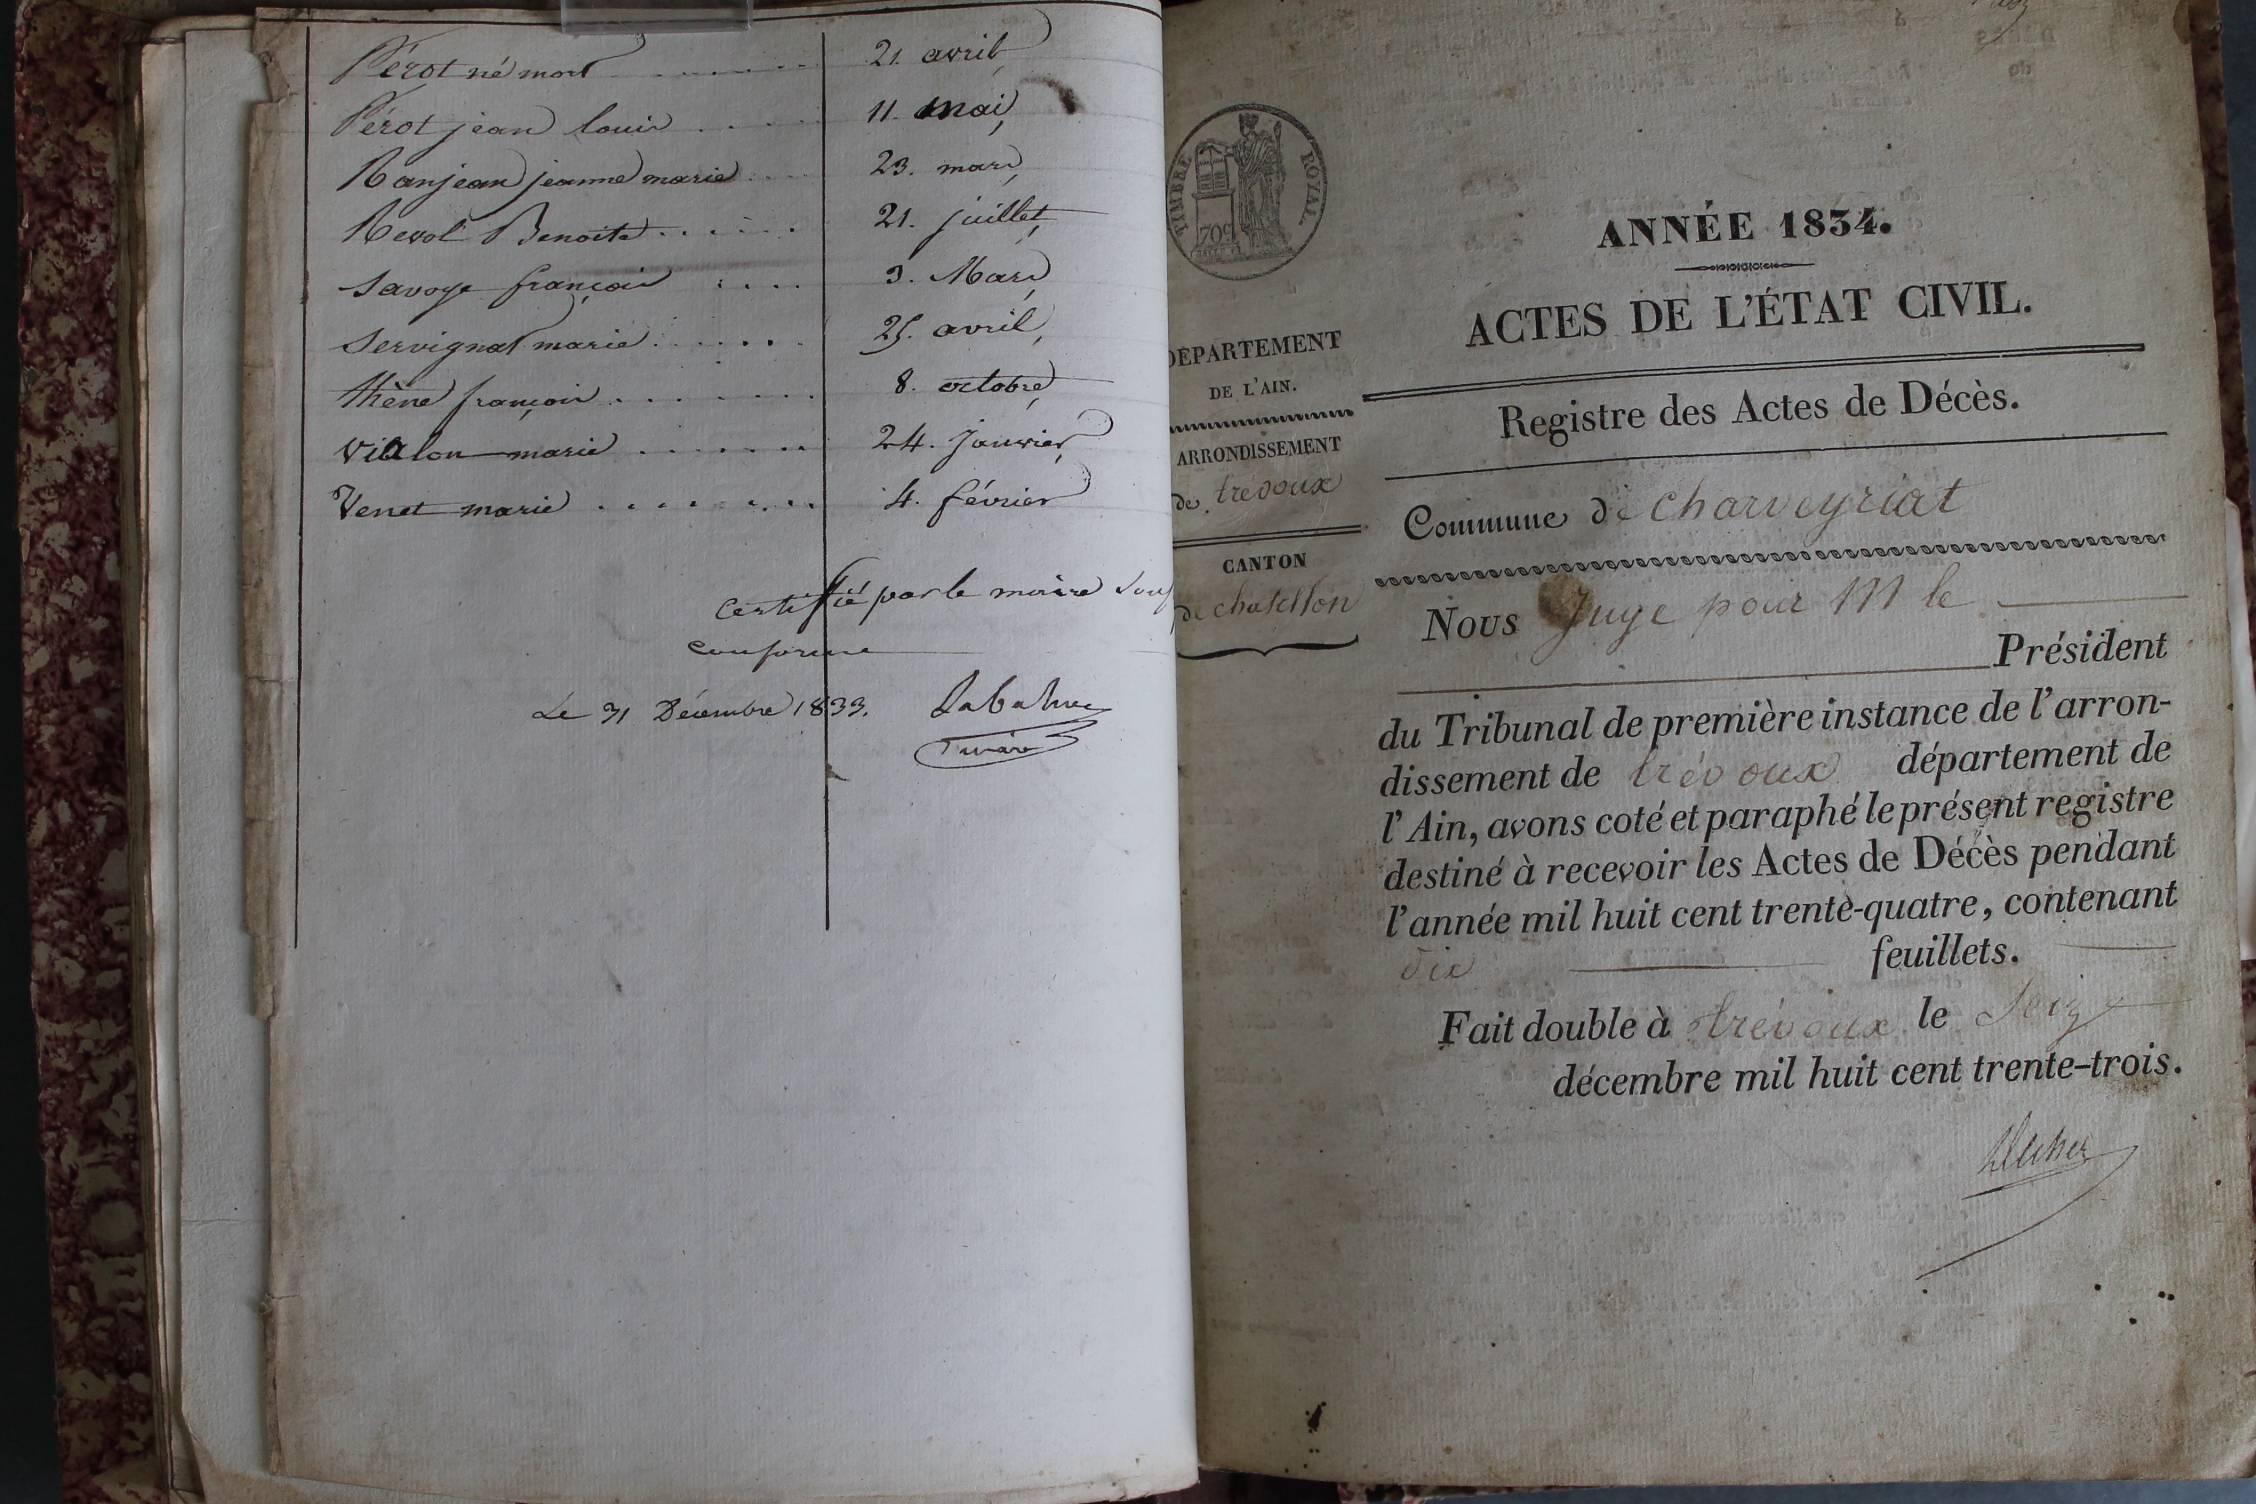 Pérot né mort 21. avril,
Pérot jean louis 11. mai,
Ranjean jeanne marie 23. mars,
Revol Benoite 21. juillet,
Savoye françois 3. Mars,
Servignat marie 25. avril,
thène françois 8. octobre,
Vialon marie 24. janvier,
Venet marie 4. février
Certifié par le maire
conforme
Le 31 Décembre 1833.
TIMBRE ROYAL
DÉPARTEMENT
DE L'AIN.
ARRONDISSEMENT
de trévoux
CANTON
de chatillon
ANNÉE 1834.
ACTES DE L'ÉTAT CIVIL.
Registre des Actes de Décès.
Commune de charveyriat
Nous Juge pour M le
Président
du Tribunal de première instance de l'arron-
dissement de trévoux département de
l'Ain, avons coté et paraphé le présent registre
destiné à recevoir les Actes de Décès pendant
l'année mil huit cent trente-quatre, contenant
dix feuillets.
Fait double à trévoux le Seize
décembre mil huit cent trente-trois.